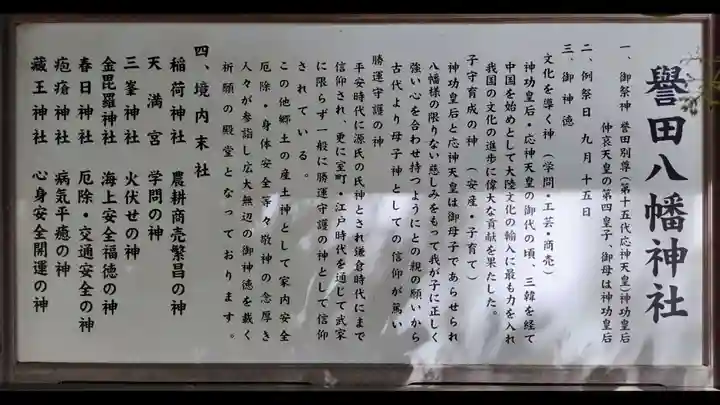 譽田八幡神社
一、御祭神 譽田別尊(第十五代応神天皇)神功皇后
仲哀天皇の第四皇子、御母は神功皇后
二、例祭日 九月十五日
三、御神徳
文化を導く神 (学問・工芸・商売)
神功皇后・応神天皇の御代の頃、三韓を経て
中国を始めとして大陸文化の輸入に最も力を入れ
我国の文化の進歩に偉大な貢献を果たした。
子守育成の神 (安産・子育て)
神功皇后と応神天皇は御母子であらせられ
八幡様の限りない慈しみをもって我が子に正しく
強い心を合わせ持つようにとの親の願いから
古代より母子神としての信仰が篤い
勝運守護の神
平安時代に源氏の氏神とされ鎌倉時代にまで
信仰され、更に室町・江戸時代を通じて武家
に限らず一般に勝運守護の神として信仰
されている。
この他郷土の産土神として家内安全
厄除・身体安全等々敬神の念厚き
人々が参詣し広大無辺の御神徳を戴く
祈願の殿堂となっております。
四、境内末社
稲荷神社 農耕商売繁昌の神
天満宮 学問の神
三峯神社 火伏せの神
金毘羅神社 海上安全福徳の神
春日神社 厄除・交通安全の神
疱瘡神社 病気平癒の神
蔵王神社 心身安全開運の神